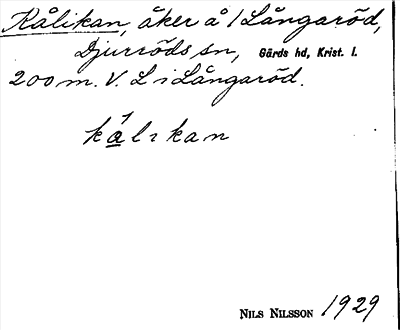 Kålikan, åker å 1 Långaröd,
Djurröds sn, Gärds hd, Krist. l.
200 m. V. L i Långaröd.
kálıkan
NILS NILSSON 1929